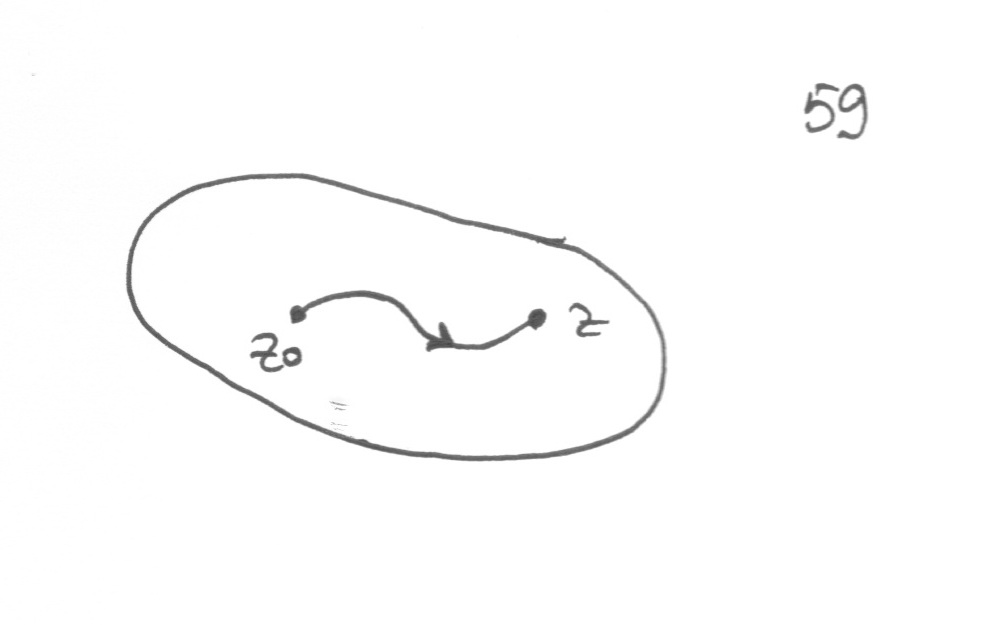 59
z₀
z